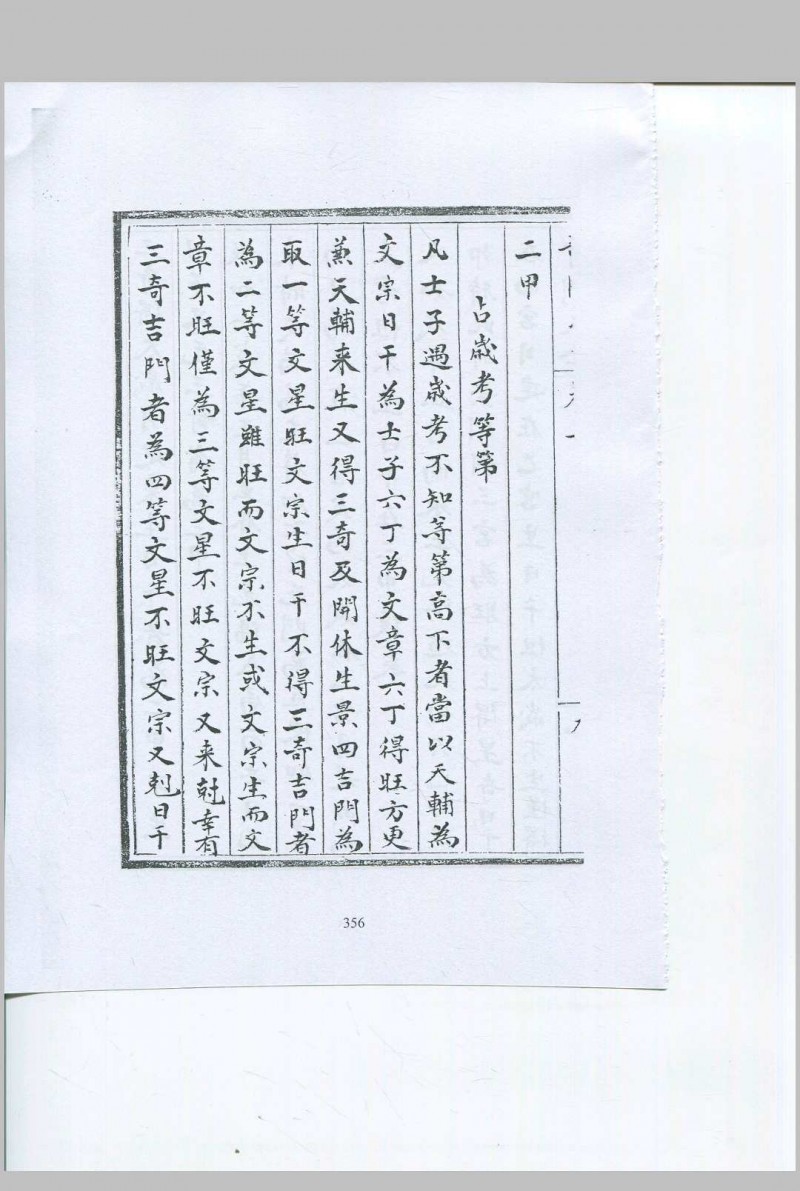 二甲
占歲考等第
凡士子遇歲考不知等第高下者當以天輔為
文宗日干為士子六丁為文章六丁得旺方更
薫天輔来生又得三奇及開休生景四吉門為
取一等文星旺文宗生日干不得三奇吉門者
為二等文星雖旺而文宗不生或文宗生而文
章不旺僅為三等文星不旺文宗又来尅幸有
三奇吉門者為四等文星不旺文宗又剋日干
356